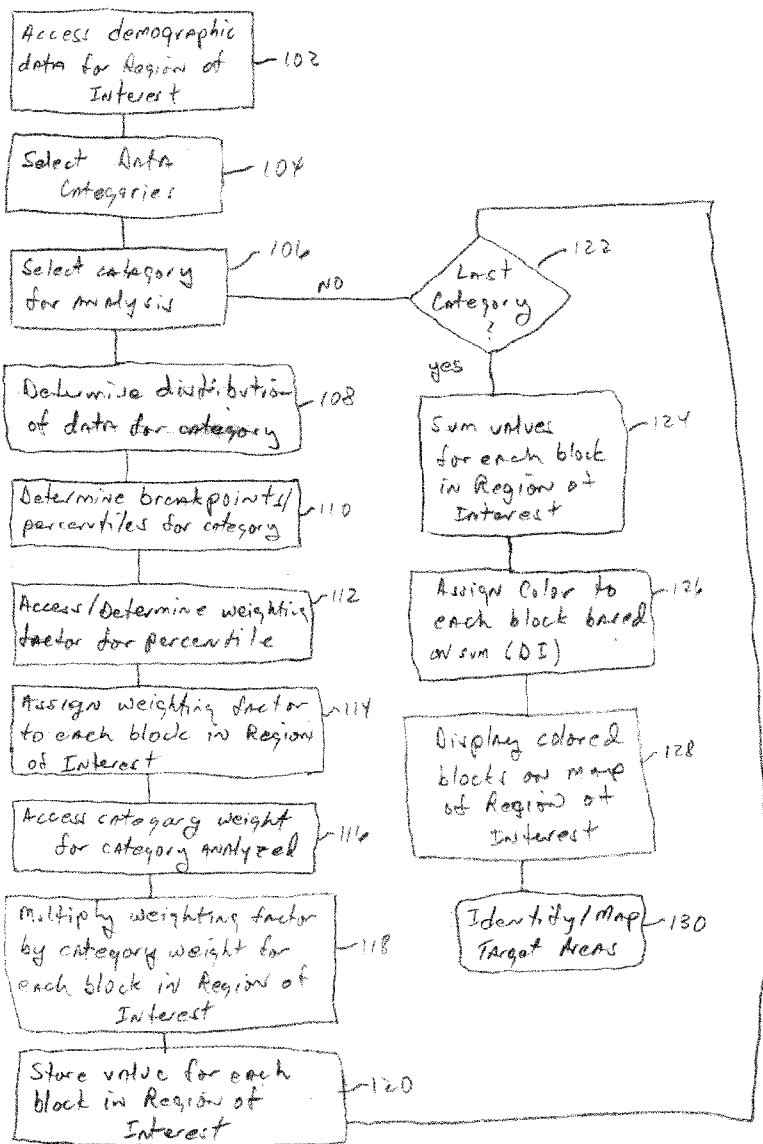 Access demographic
data for Region of
Interest
102
Select Data
Categories
104
Select category
for Analysis
106
Determine distribution
of data for category
108
Determine breakpoints/
percentiles for category
110
Access/Determine weighting
factor for percentile
112
Assign weighting factor
to each block in Region
of Interest
114
Access category weight
for category analyzed
116
Multiply weighting factor
by category weight for
each block in Region of
Interest
118
Store value for each
block in Region of
Interest
120
Last
Category
?
122
NO
yes
Sum values
for each block
in Region of
Interest
124
Assign Color to
each block based
on sum (DI)
126
Display colored
blocks on map
of Region of
Interest
128
Identify/Map
Target Areas
130